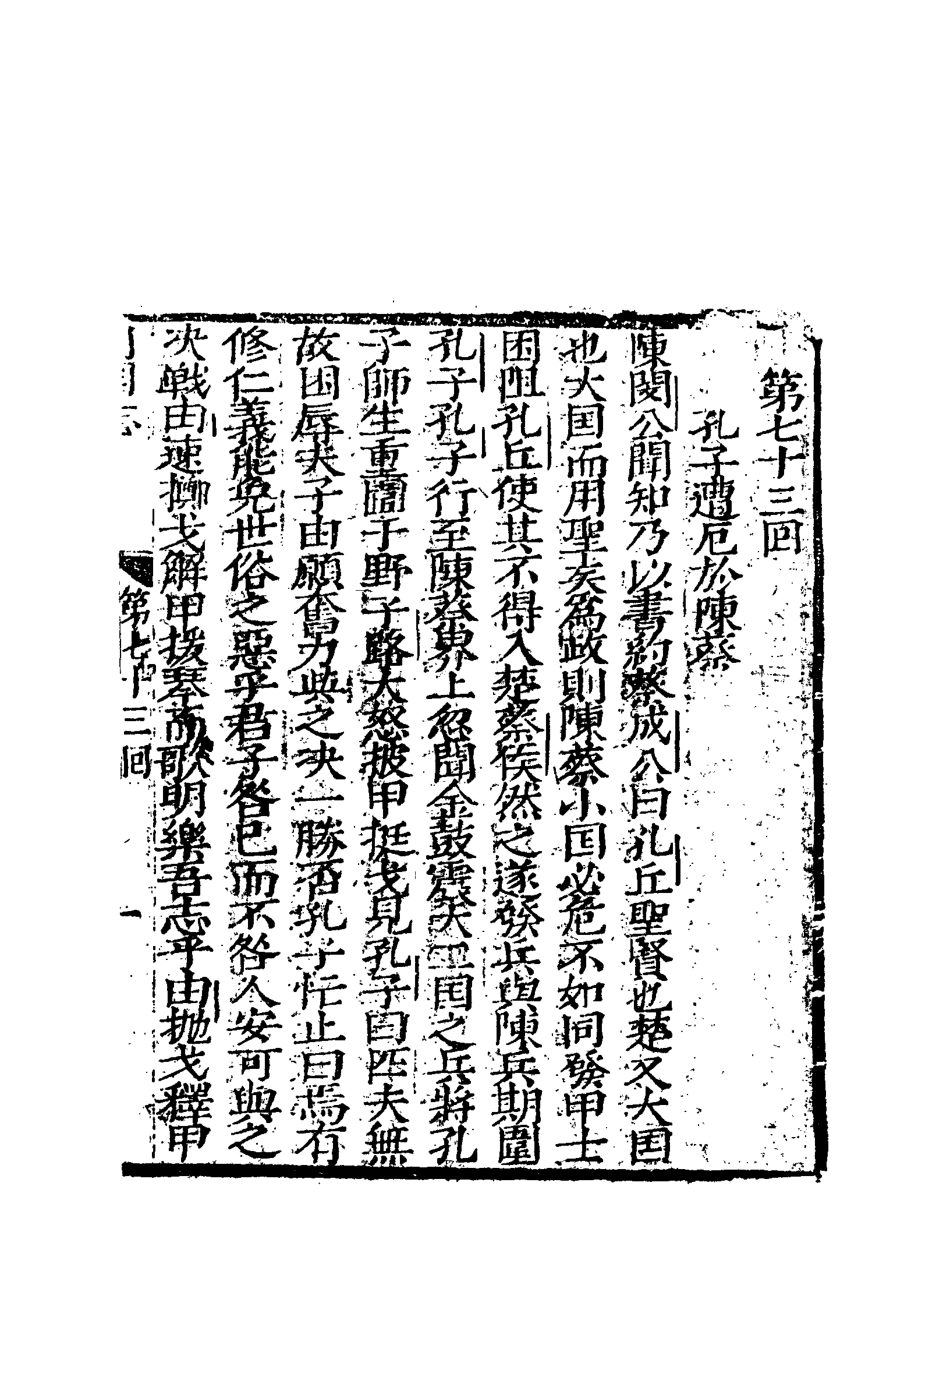 第七十三回
孔子遭厄於陳蔡
陳閔公聞知乃以書約蔡成公曰孔丘聖賢也楚又大囯
也大囯而用聖矣爲政則陳蔡小囯必危不如同發甲士
困阻孔丘使其不得入楚蔡侯然之遂發兵與陳兵期圍
孔子孔子行至陳蔡界上忽聞金鼓震天二囯之兵將孔
子師生重圍于野子路大怒披甲挺戈見孔子曰匹夫無
故困辱夫子由願奮力與之决一勝否孔子忙止曰焉有
修仁義能免世俗之惡乎君子咎已而不咎人安可與之
决戰由速擲戈解甲援琴而歌明樂吾志乎由抛戈釋甲
第七十三回
一